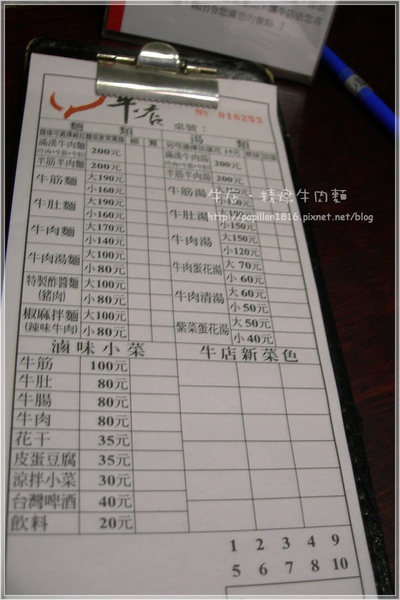 牛店
№ 016253
桌號：
麵 類
湯 類
滿漢牛肉麵 200元
滿漢牛肉湯 200元
半筋半肉麵 200元
半筋半肉湯 200元
牛筋麵 大190元 小160元
牛筋湯
牛肚麵 大190元 小160元
牛肚湯 小150元
牛肉麵 大170元 小140元
牛肉湯 大150元 小120元
牛肉湯麵 大100元 小80元
牛肉蛋花湯 大70元 小60元
特製酢醬麵(豬肉) 大100元 小80元
牛肉清湯 大60元 小50元
椒麻拌麵(辣味牛肉) 大100元 小80元
紫菜蛋花湯 大50元 小40元
滷味小菜
牛店新菜色
牛筋 100元
牛肚 80元
牛腸 80元
牛肉 80元
花干 35元
皮蛋豆腐 35元
涼拌小菜 30元
台灣啤酒 40元
飲料 20元
1 2 3 4 9
5 6 7 8 10
牛店 精燉牛肉麵
http://papillon1816.pixnet.net/blog